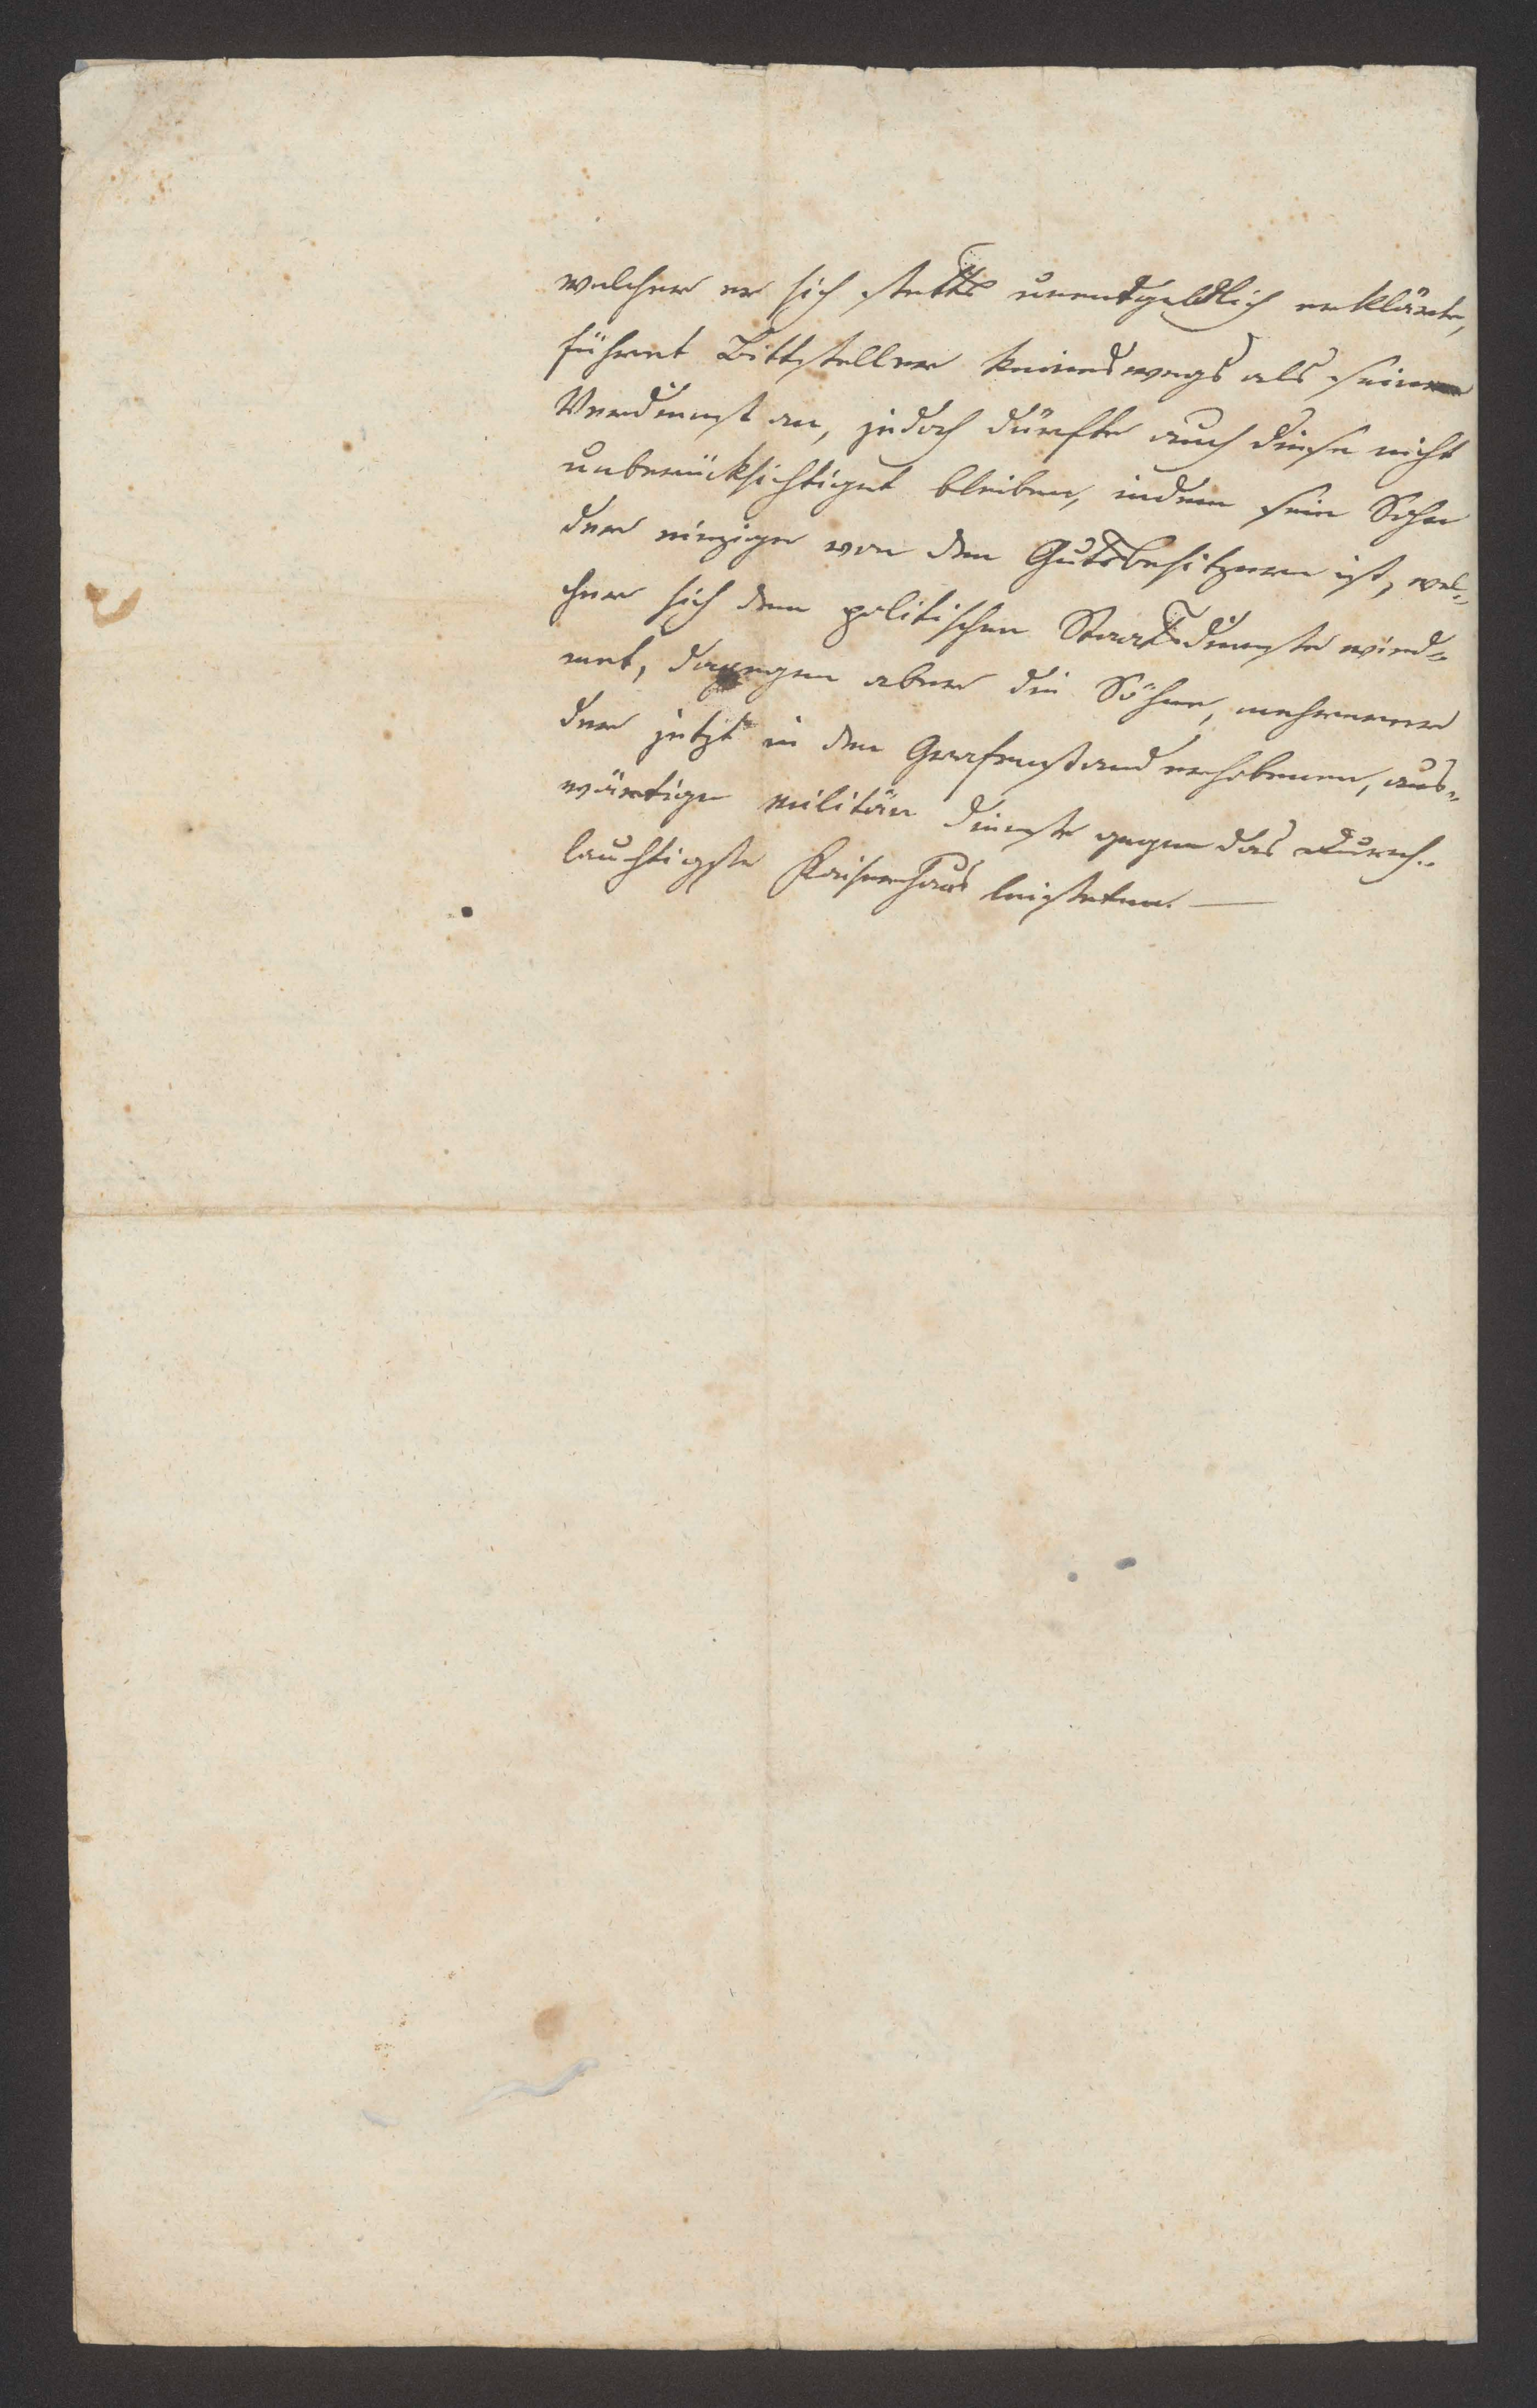 welcher er sich stetts unendtgeldlich erklärte,
führet Bittsteller keineswegs als seine
Verdienst an, jedoch dürfte auch diese nicht
unberücksichtiget bleiben, indem sein Sohn
der einzige von den Gutsbesitzern ist, wel-
cher sich dem politischen Staatsdienste wied-
met, dagegen aber die Söhne, mehrerer
der jetzt in den Grafenstand erhobenen, aus-
wärtige militär Dienste gegen das Durch-
lauchtigste Kaiserhaus leisteten. —